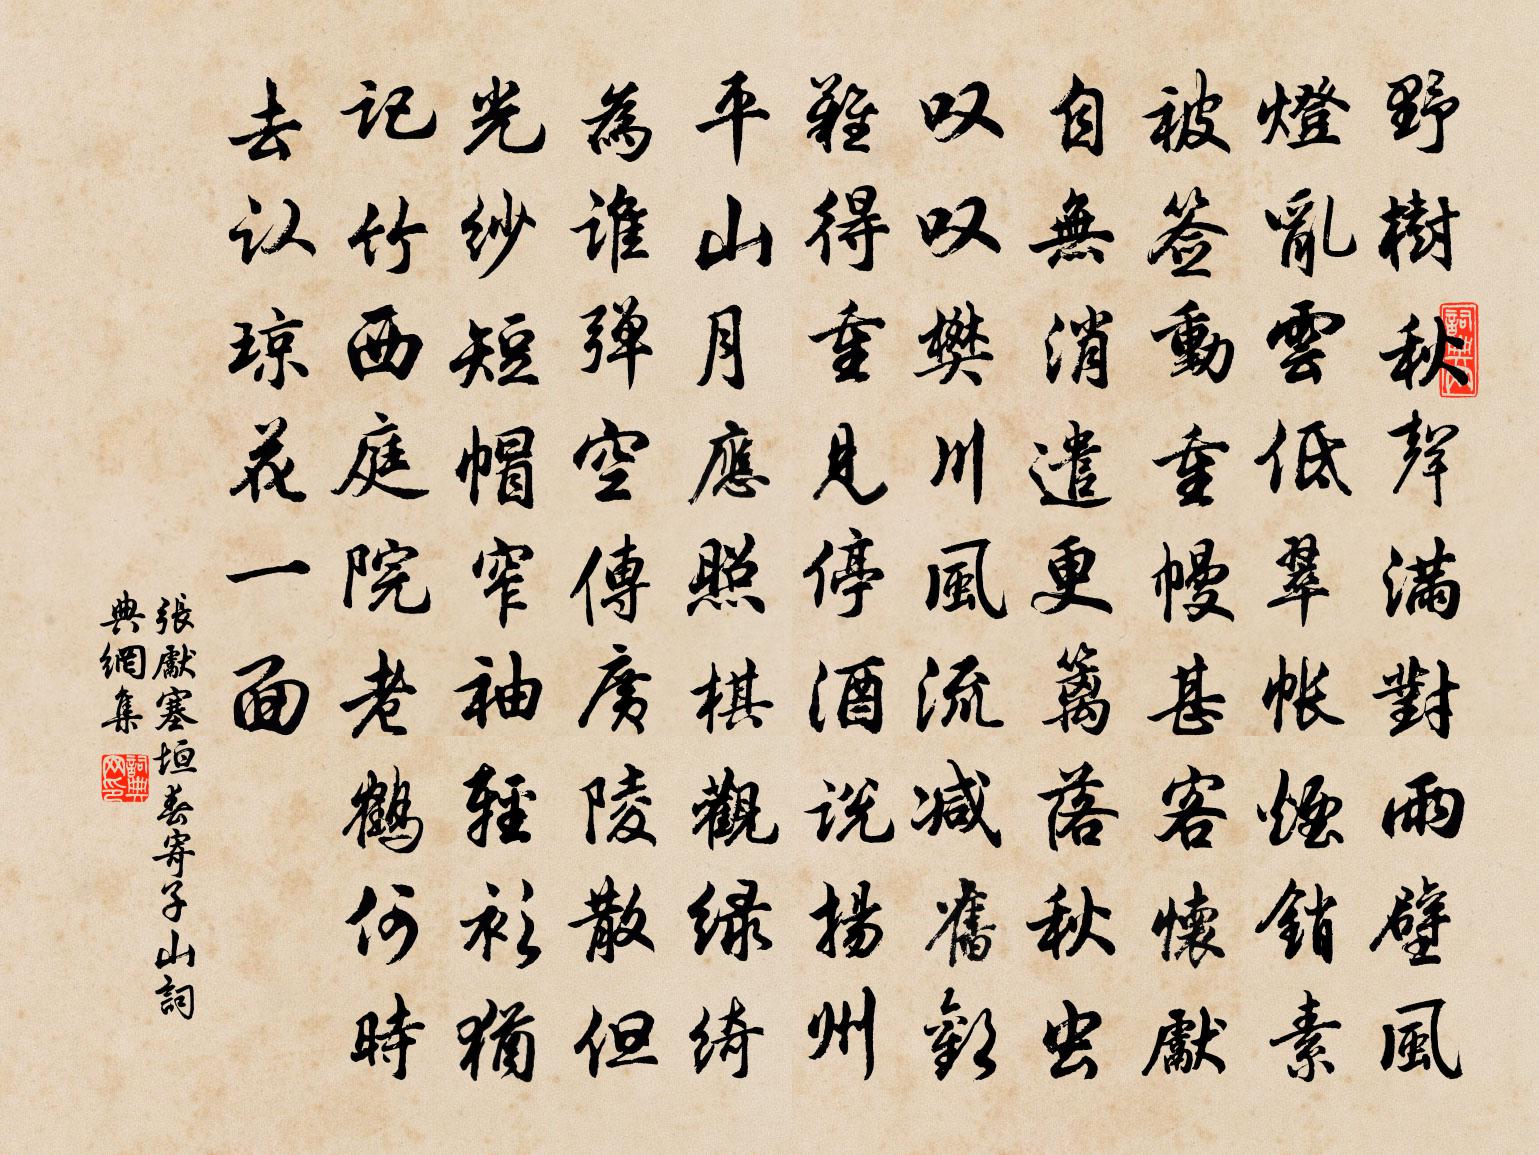 野樹秋聲滿對雨壁風
燈亂雲低翠帳煙銷素
被簽動重幔甚客懷獻
自無消遣更籬落秋虫
叹叹樊川風流减舊歡
難得重見停酒説揚州
平山月應照棋觀緑綺
為誰弹空傳廣陵散但
光紗短帽窄袖輕衫猶
記竹西庭院老鶴何時
去认琼花一面
張獻塞垣春寄子山詞
典網集
詞典网
詞典网印